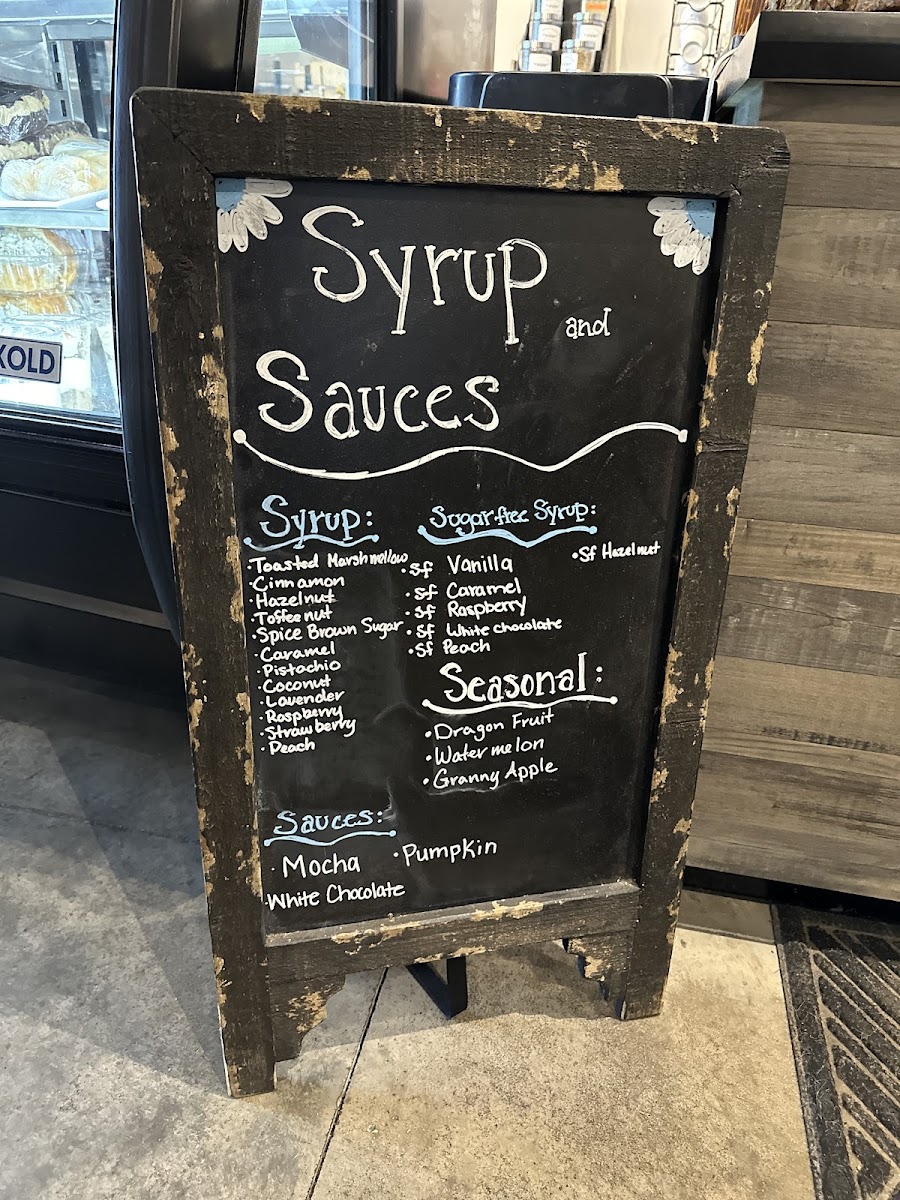 KOLD
Syrup
and
Sauces
Syrup:
·Toasted Marshmellow
·Cinnamon
·Hazelnut
·Toffee nut
·Spice Brown Sugar
·Caramel
·Pistachio
·Coconut
·Lavender
·Raspberry
·Strawberry
·Peach
Sugar free Syrup:
·Sf Vanilla
·Sf Caramel
·Sf Raspberry
·Sf White chocolate
·Sf Peach
·Sf Hazelnut
Seasonal:
·Dragon Fruit
·Watermelon
·Granny Apple
Sauces:
·Mocha ·Pumpkin
·White Chocolate